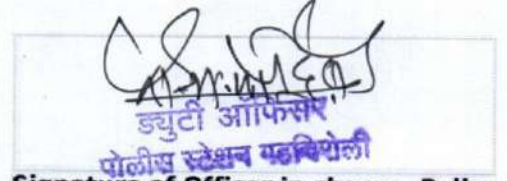 ड्युटी ऑफिसर
पोलीस स्टेशन गडचिरोली
Signature of Officer in charge, Police